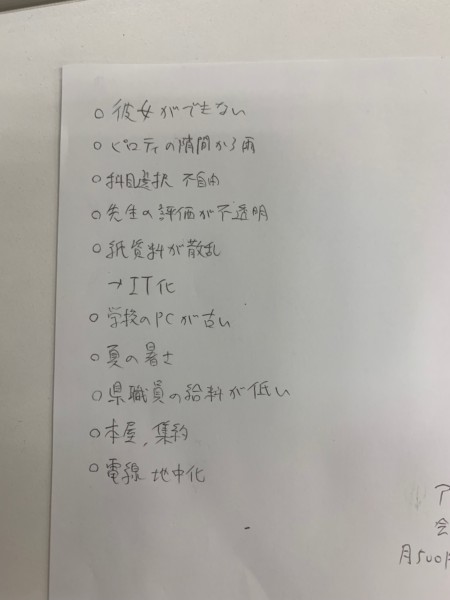 ○ 彼女ができない
○ ピロティの隙間から雨
○ 科目選択 不自由
○ 先生の評価が不透明
○ 紙資料が散乱
→ IT化
○ 学校のPCが古い
○ 夏の暑さ
○ 県職員の給料が低い
○ 本屋、集約
○ 電線 地中化
ア
会
月500円